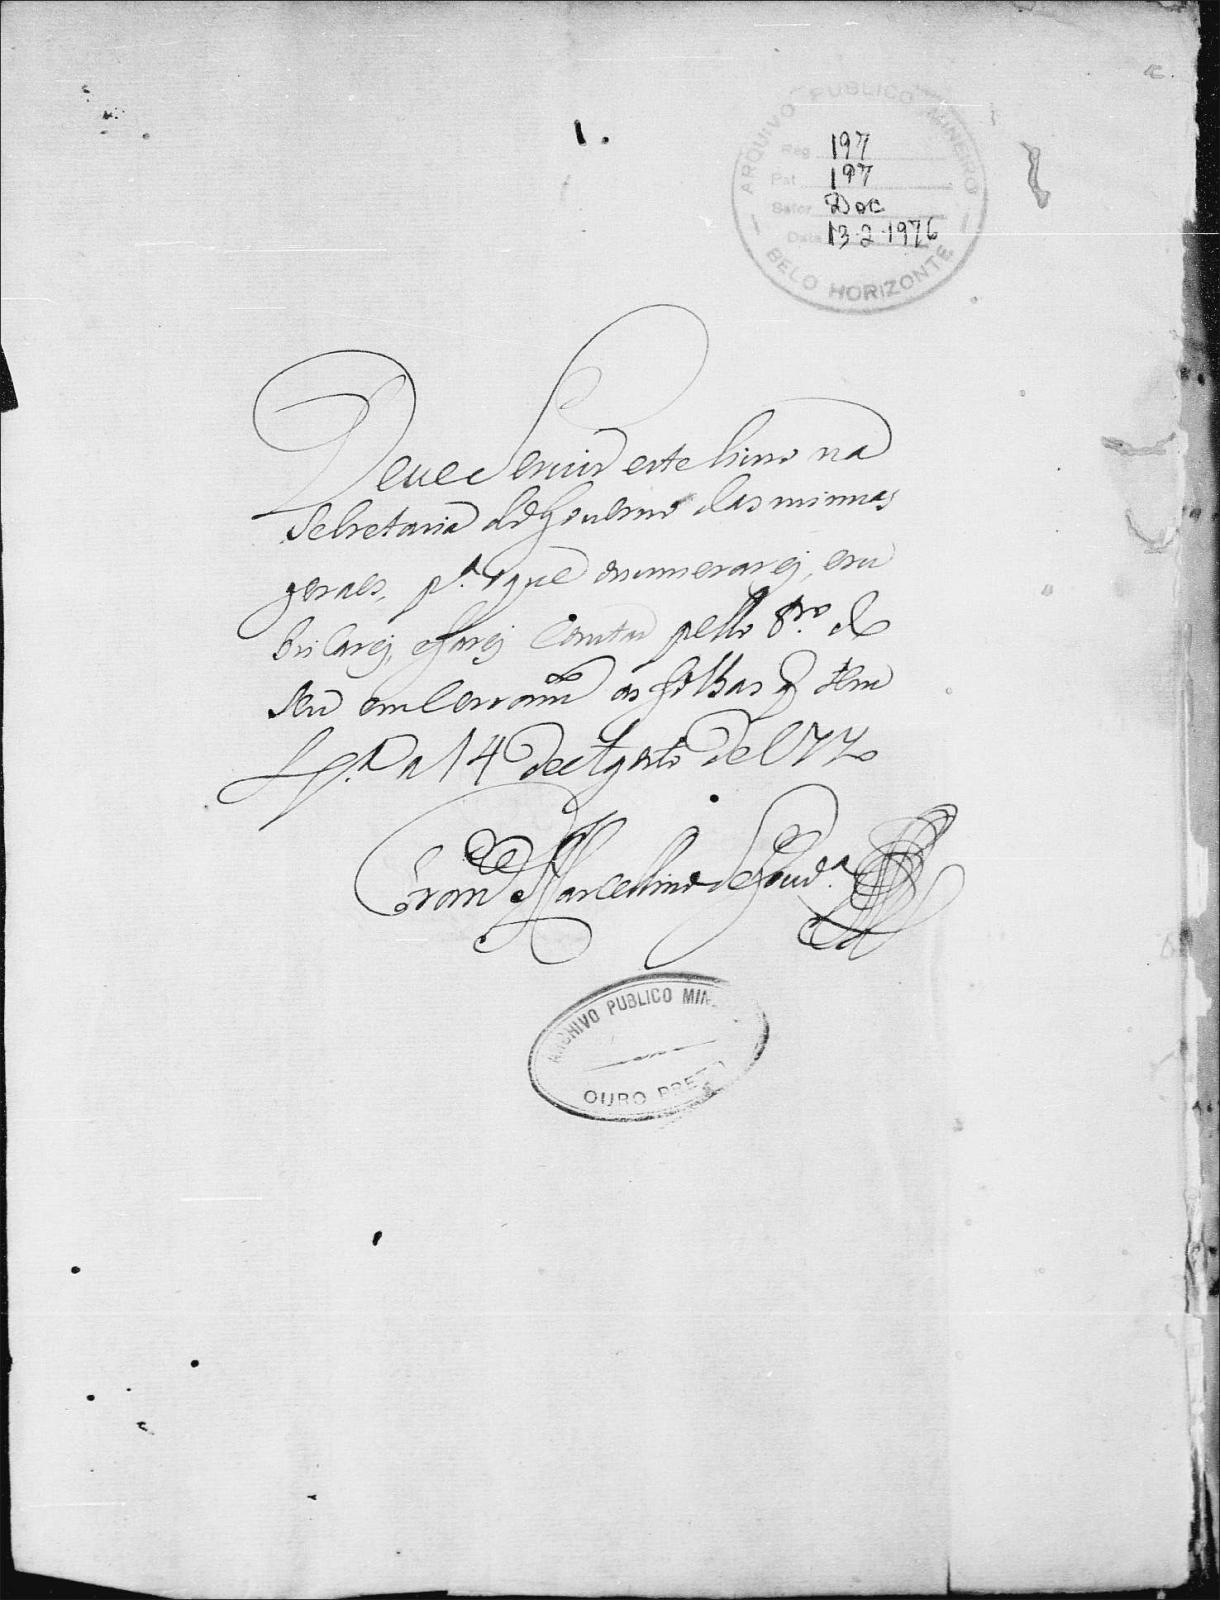 1.
ARQUIVO PUBLICO MINEIRO
Reg 197
Pat 197
Setor Doc
Data 13-2-1976
BELO HORIZONTE
Deue Seruir este liuro na
Secretaria do Gouerno das minnas
geraes, p.ª o que o numerarej, e ru
bricarej, e farej Contar pello 3.ro de
seu emcerram.to as folhas q tem
Lx.ª a 14 de Agosto de 17
Fran Marcellino de Gouu.ª
ARCHIVO PUBLICO MIN
OURO PRETO